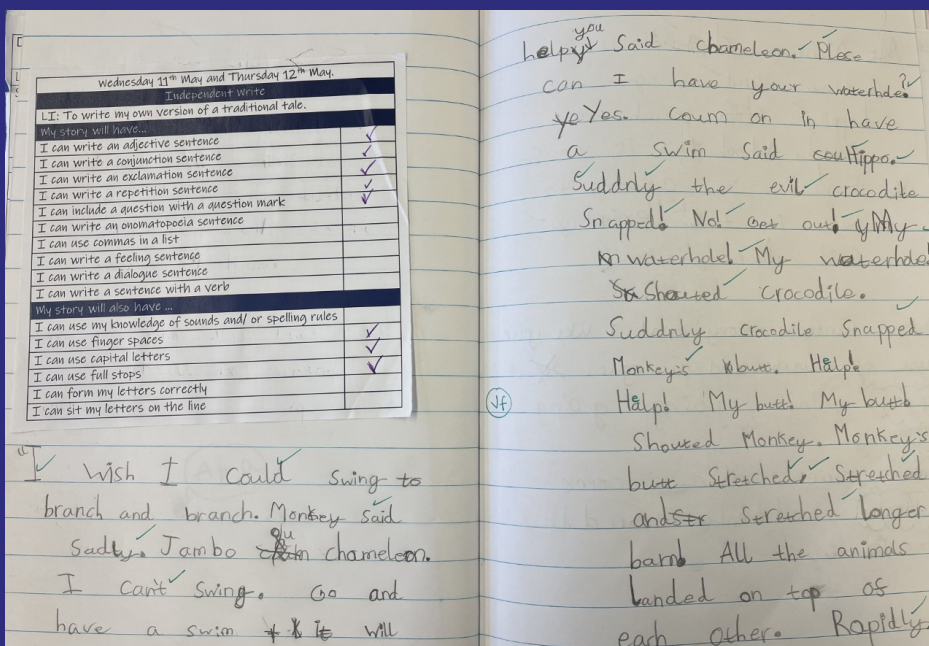 Wednesday 11th May and Thursday 12th May.
Independent Write
LI: To write my own version of a traditional tale.
My story will have...
I can write an adjective sentence
I can write a conjunction sentence
I can write an exclamation sentence
I can write a repetition sentence
I can include a question with a question mark
I can write an onomatopoeia sentence
I can use commas in a list
I can write a feeling sentence
I can write a dialogue sentence
I can write a sentence with a verb
My story will also have ...
I can use my knowledge of sounds and/ or spelling rules
I can use finger spaces
I can use capital letters
I can use full stops
I can form my letters correctly
I can sit my letters on the line
"I wish I could swing to
branch and branch. Monkey said
sadly. Jambo chameleon.
I can't swing. Go and
have a swim it will
help you said chameleon. Plese
can I have your waterhole?
ye Yes. Coum on in have
a swim said Hippo.
Suddnly the evil crocodile
Snapped! No! Get out! My
waterhole! My waterhole
Shouted crocodile.
Suddnly crocodile snapped
Monkey's butt. Help!
vf
Help! My butt! My butt
Shouted Monkey. Monkey's
butt stretched, stretched
and stretched longer
bam! All the animals
landed on top of
each other. Rapidly